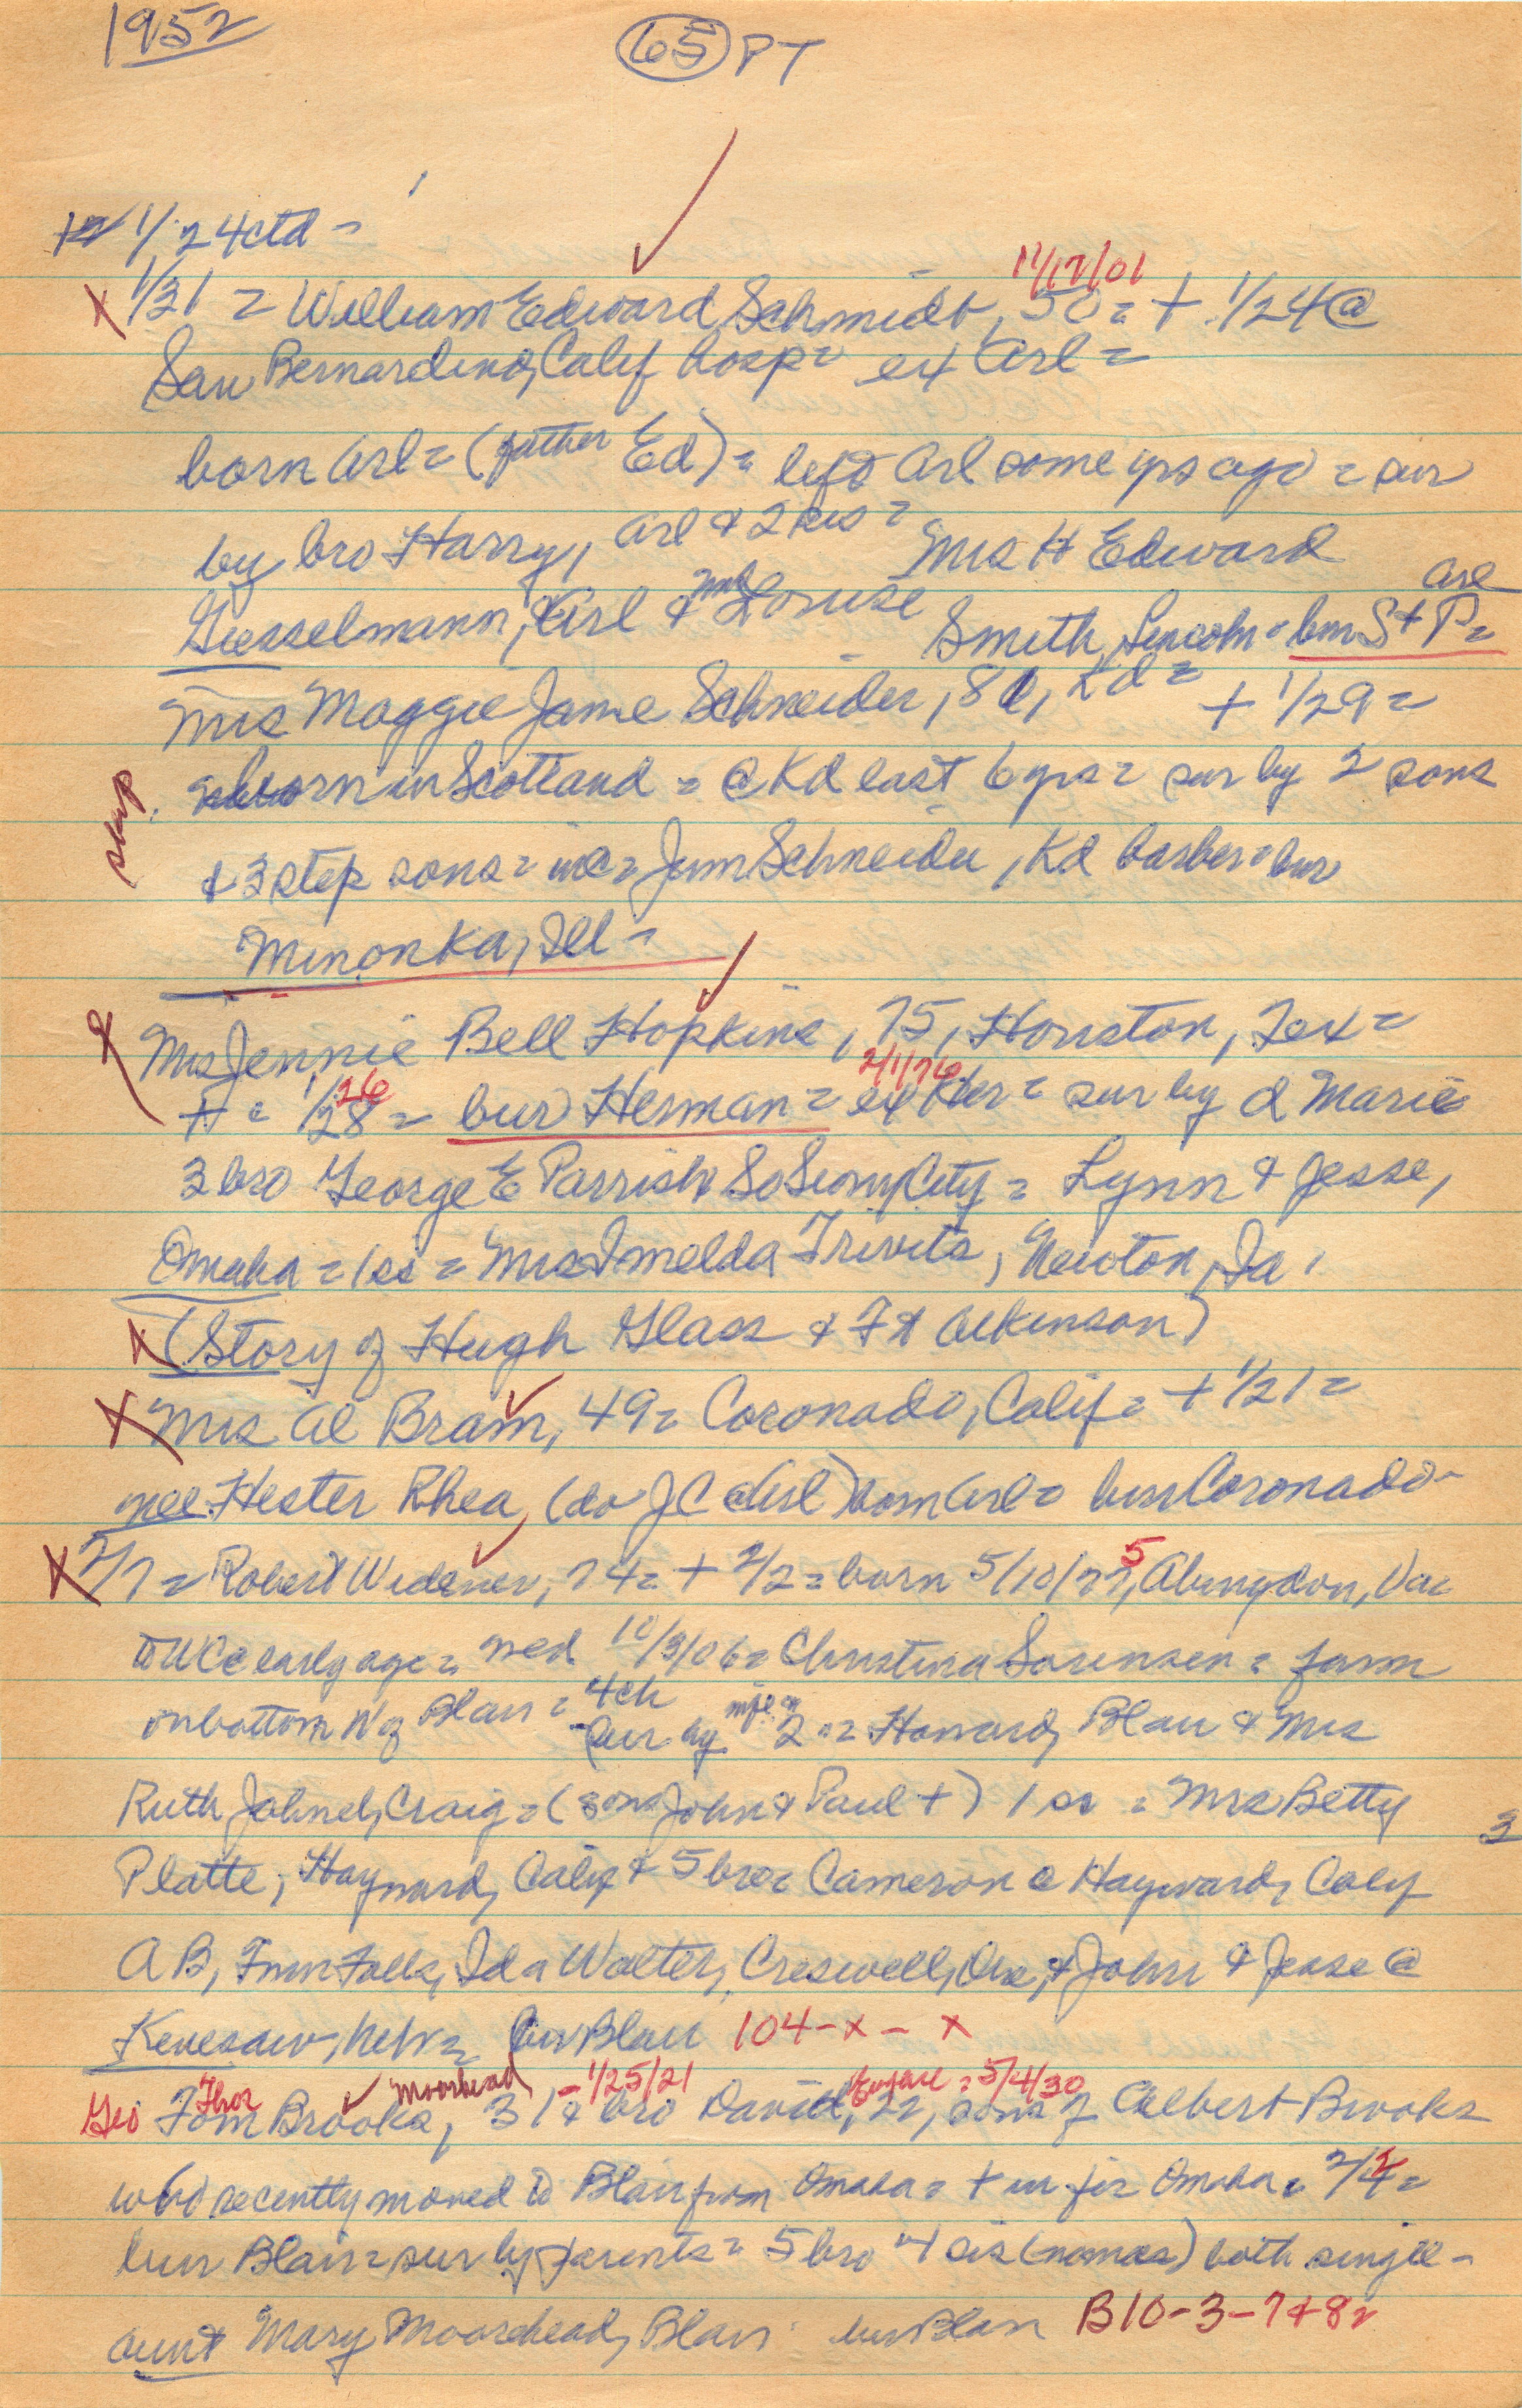 1952
65 PT
1/24 ctd =
11/17/01
X 1/31 = William Edward Schmidt, 50 = + 1/24 @
San Bernardino, Calif hosp = ex Arl =
born Arl = (father Ed) = left Arl some yrs ago = sur
by bro Harry, Arl & 2 sis = Mrs H Edward
Giesselmann, Arl & Louise Smith, Lincoln = bur S + P = Arl
Mrs Maggie Jane Schneider, 81, Kd = + 1/29 =
step. born in Scotland = @ Kd last 6 yrs = sur by 2 sons
& 3 step sons = inc = Jim Schneider, Kd barber = bur
Minonka, Ill =
X Mrs Jennie Bell Hopkins, 75, Houston, Tex =
26 2/1/76
+ = 1/28 = bur Herman = ex Her = sur by d Marie
3 bro George E Parrish So Sioux City = Lynn & Jesse,
Omaha = 1 si = Mrs Imelda Trivits, Newton, Ia,
X (Story of Hugh Glass & Ft Atkinson)
X Mrs Al Bram, 49 = Coronado, Calif = + 1/21 =
nee Hester Rhea, (do J C @ Arl) born Arl = bur Coronado =
5
X 2/7 = Robert Widener, 74 = + 2/2 = born 5/10/77, Abingdon, Va =
to WC @ early age = wed 10/3/06 = Christina Sorensen = farm
on bottom N of Blair = 4 ch
sur by 2 = Howard, Blair & Mrs
Ruth Jahnel, Craig = (sons John & Paul +) 1 si = Mrs Betty
3
Platte, Hayward, Calif & 5 bro = Cameron @ Hayward, Calif
A B, Twin Falls, Ida Walter, Creswell, Ore, & John & Jesse @
Kenesaw, Nebr = bur Blair 104 - x - x
Thor Moorhead = 1/25/21 Eugene = 5/4/30
Geo Tom Brooks, 31 & bro David, 22, sons of Albert Brooks
who recently moved to Blair from Omaha = + in fir Omaha = 2/2 =
bur Blair = sur by parents = 5 bro 4 sis (names) both single =
aunt Mary Moorehead, Blair bur Blair B10 - 3 - 7 & 8 =